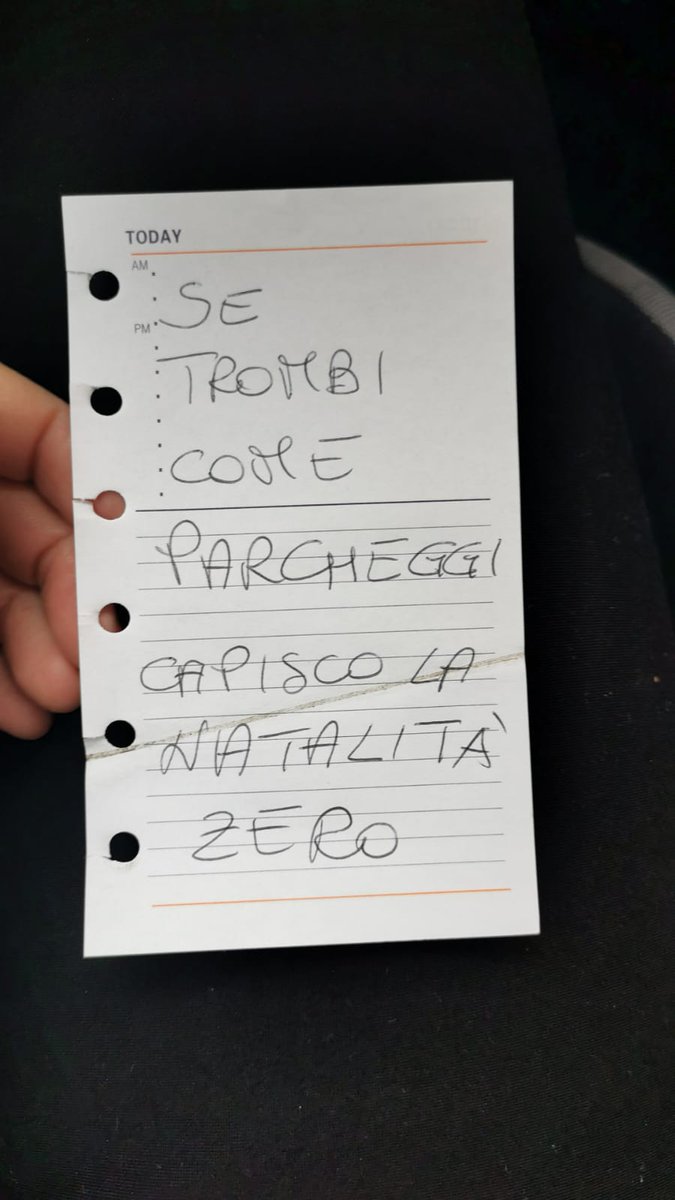 TODAY
AM
PM
SE
TROMBI
COME
PARCHEGGI
CAPISCO LA
NATALITÀ
ZERO